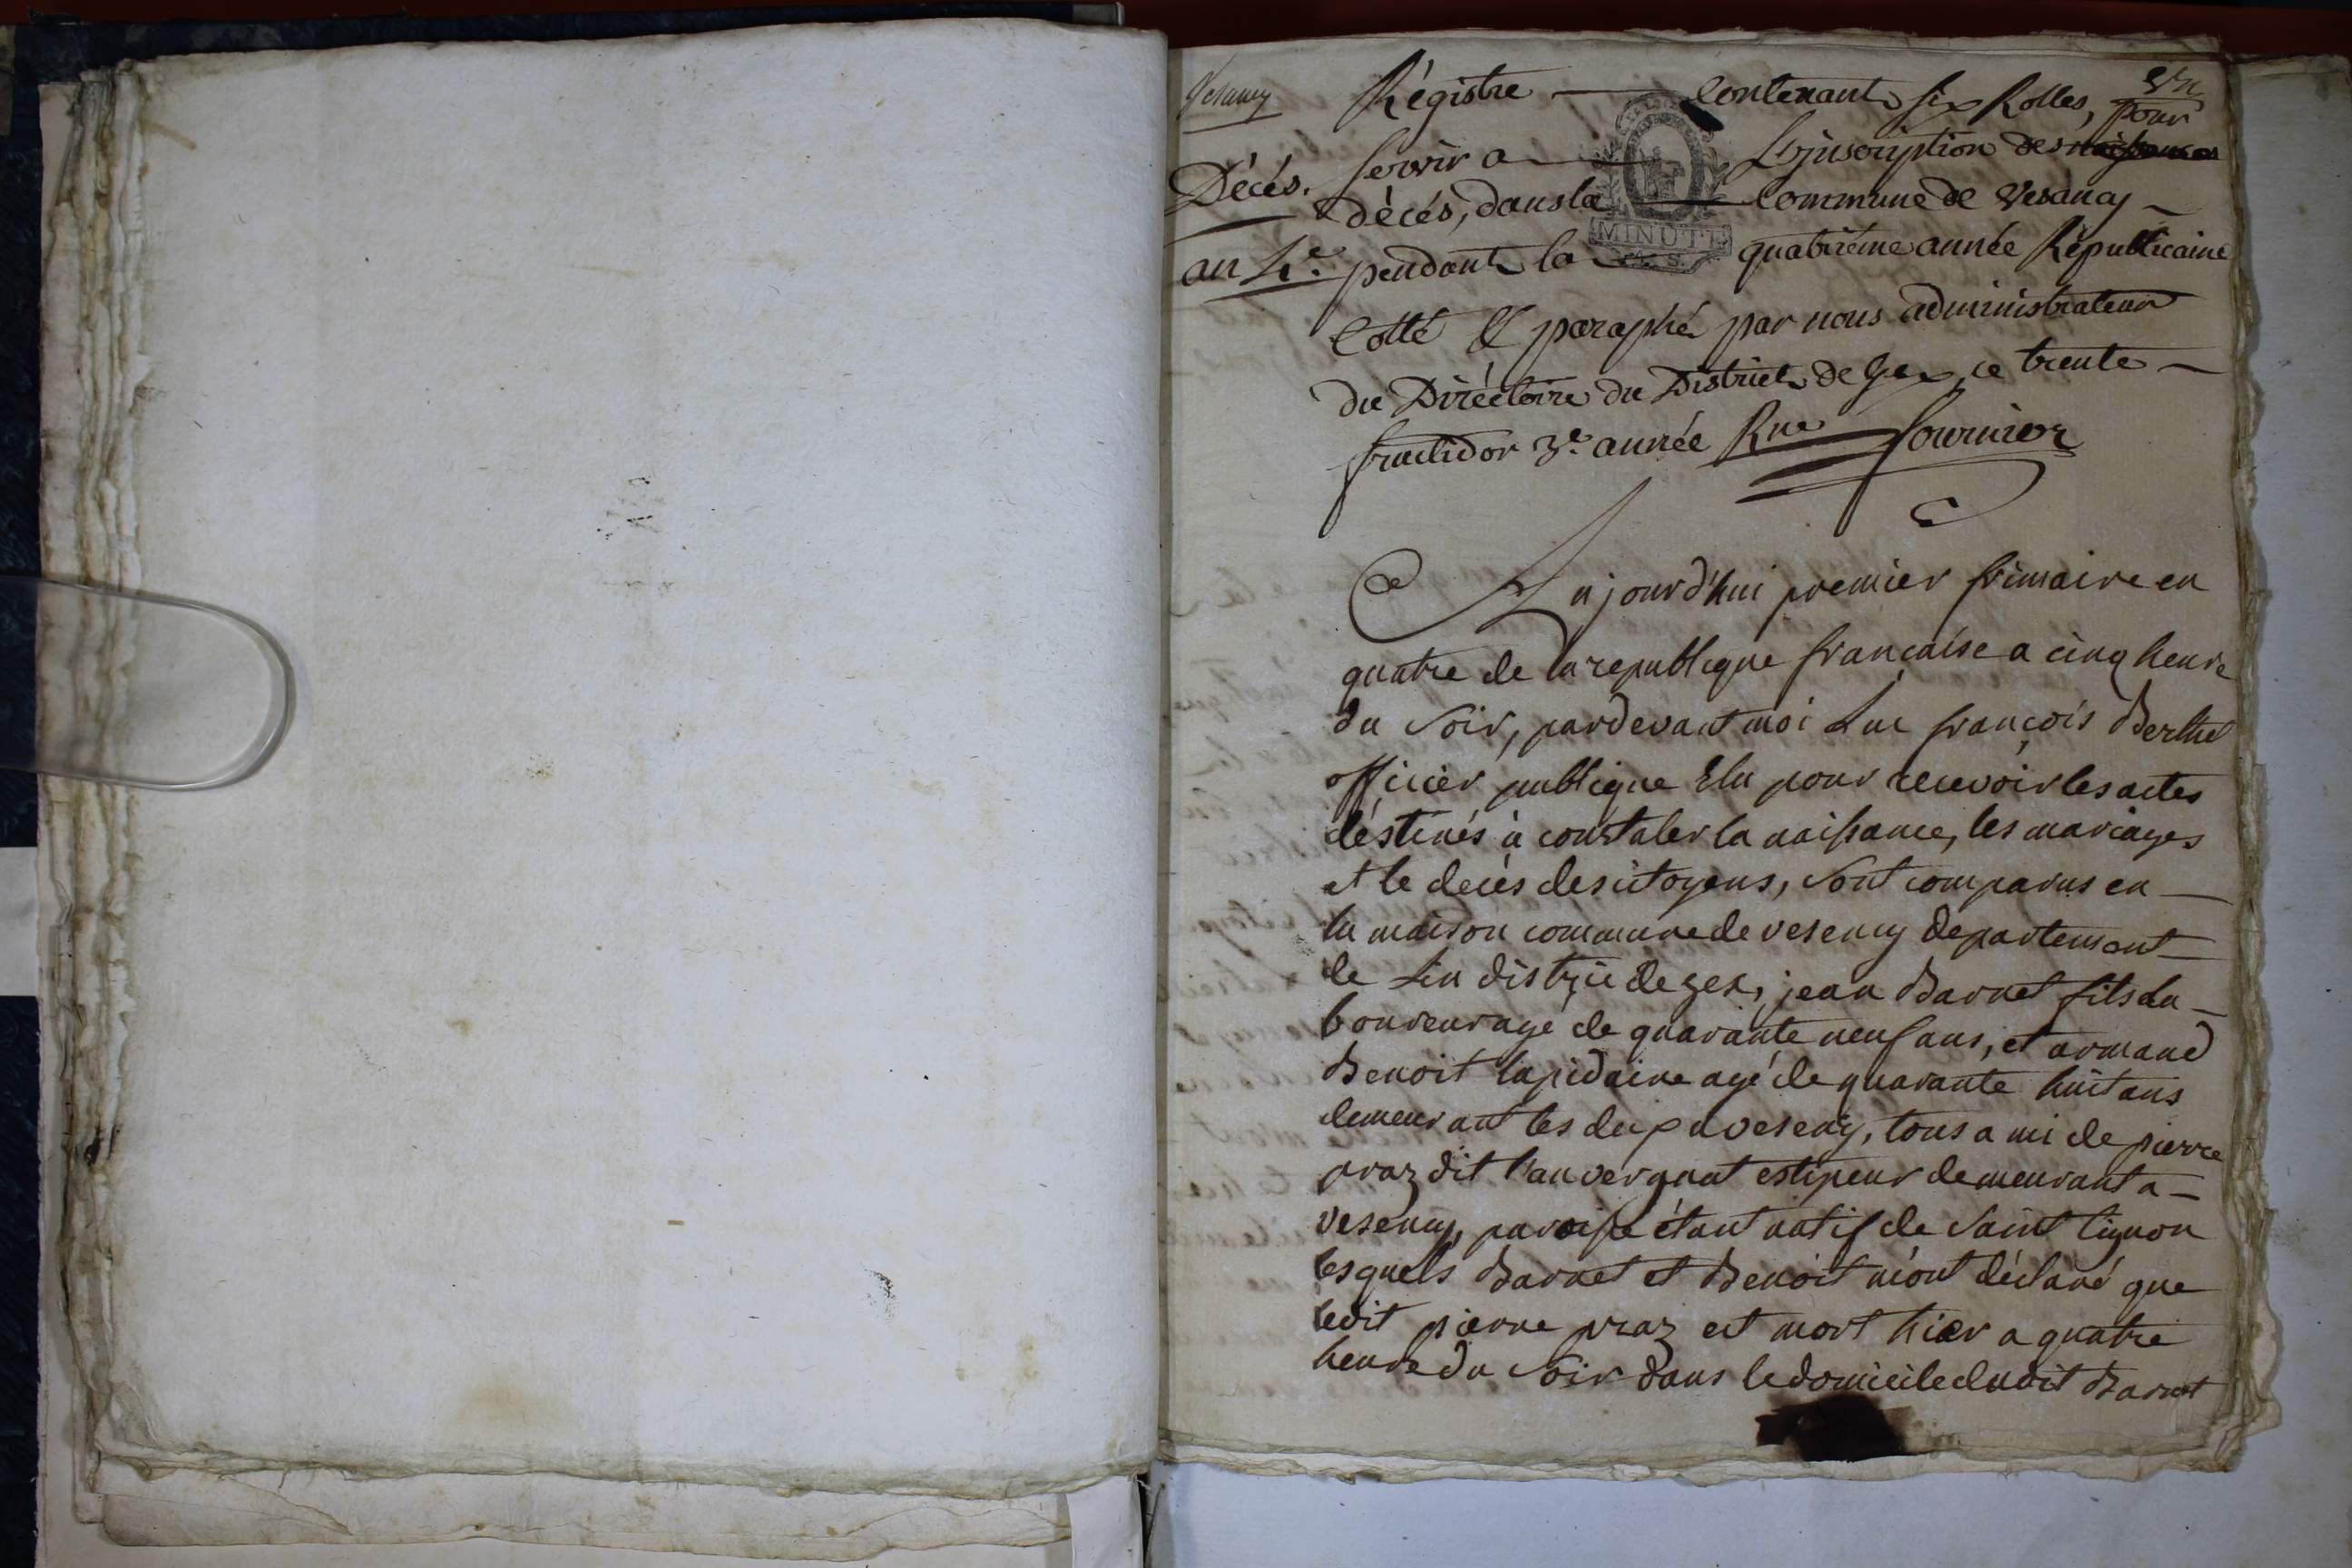 Vesancy
Décés.
an 4.e
un
Régistre contenant six Rolles, pour
servir a L'inscription des naissances
décés, dans la Commune de Vesancy
pendant la quatrième année Républicaine
MINUTE
Cotté & paraphé par nous administrateur
du Diréctoire du District de Gex, ce trente
fructidor 3.e année Rne Fournier
Aujourd'hui premier frimaire en
quatre de la republique francaise a cinq heure
du soir, pardevant moi Luc françois Berthet
officier publique Elu pour recevoir les actes
déstinés à constater la naissance, les mariages
et le decès des citoyens, sont comparus en
la maison commune de vesency departement
de Lin distric de gex, jean Barnet fils la-
boureur agé de quarante neuf ans, et armand
Benoit lapidaire agé de quarante huit ans
demeurant les deux a vesency, tous ami de pierre
praz dit l'auvergnat demeurant a
vesency, paroisse étant natif de saint
lesquels Barnet et Benoit m'ont déclaré que
ledit pierre praz est mort hier a quatre
heure du soir dans le domicile dudit Barnet